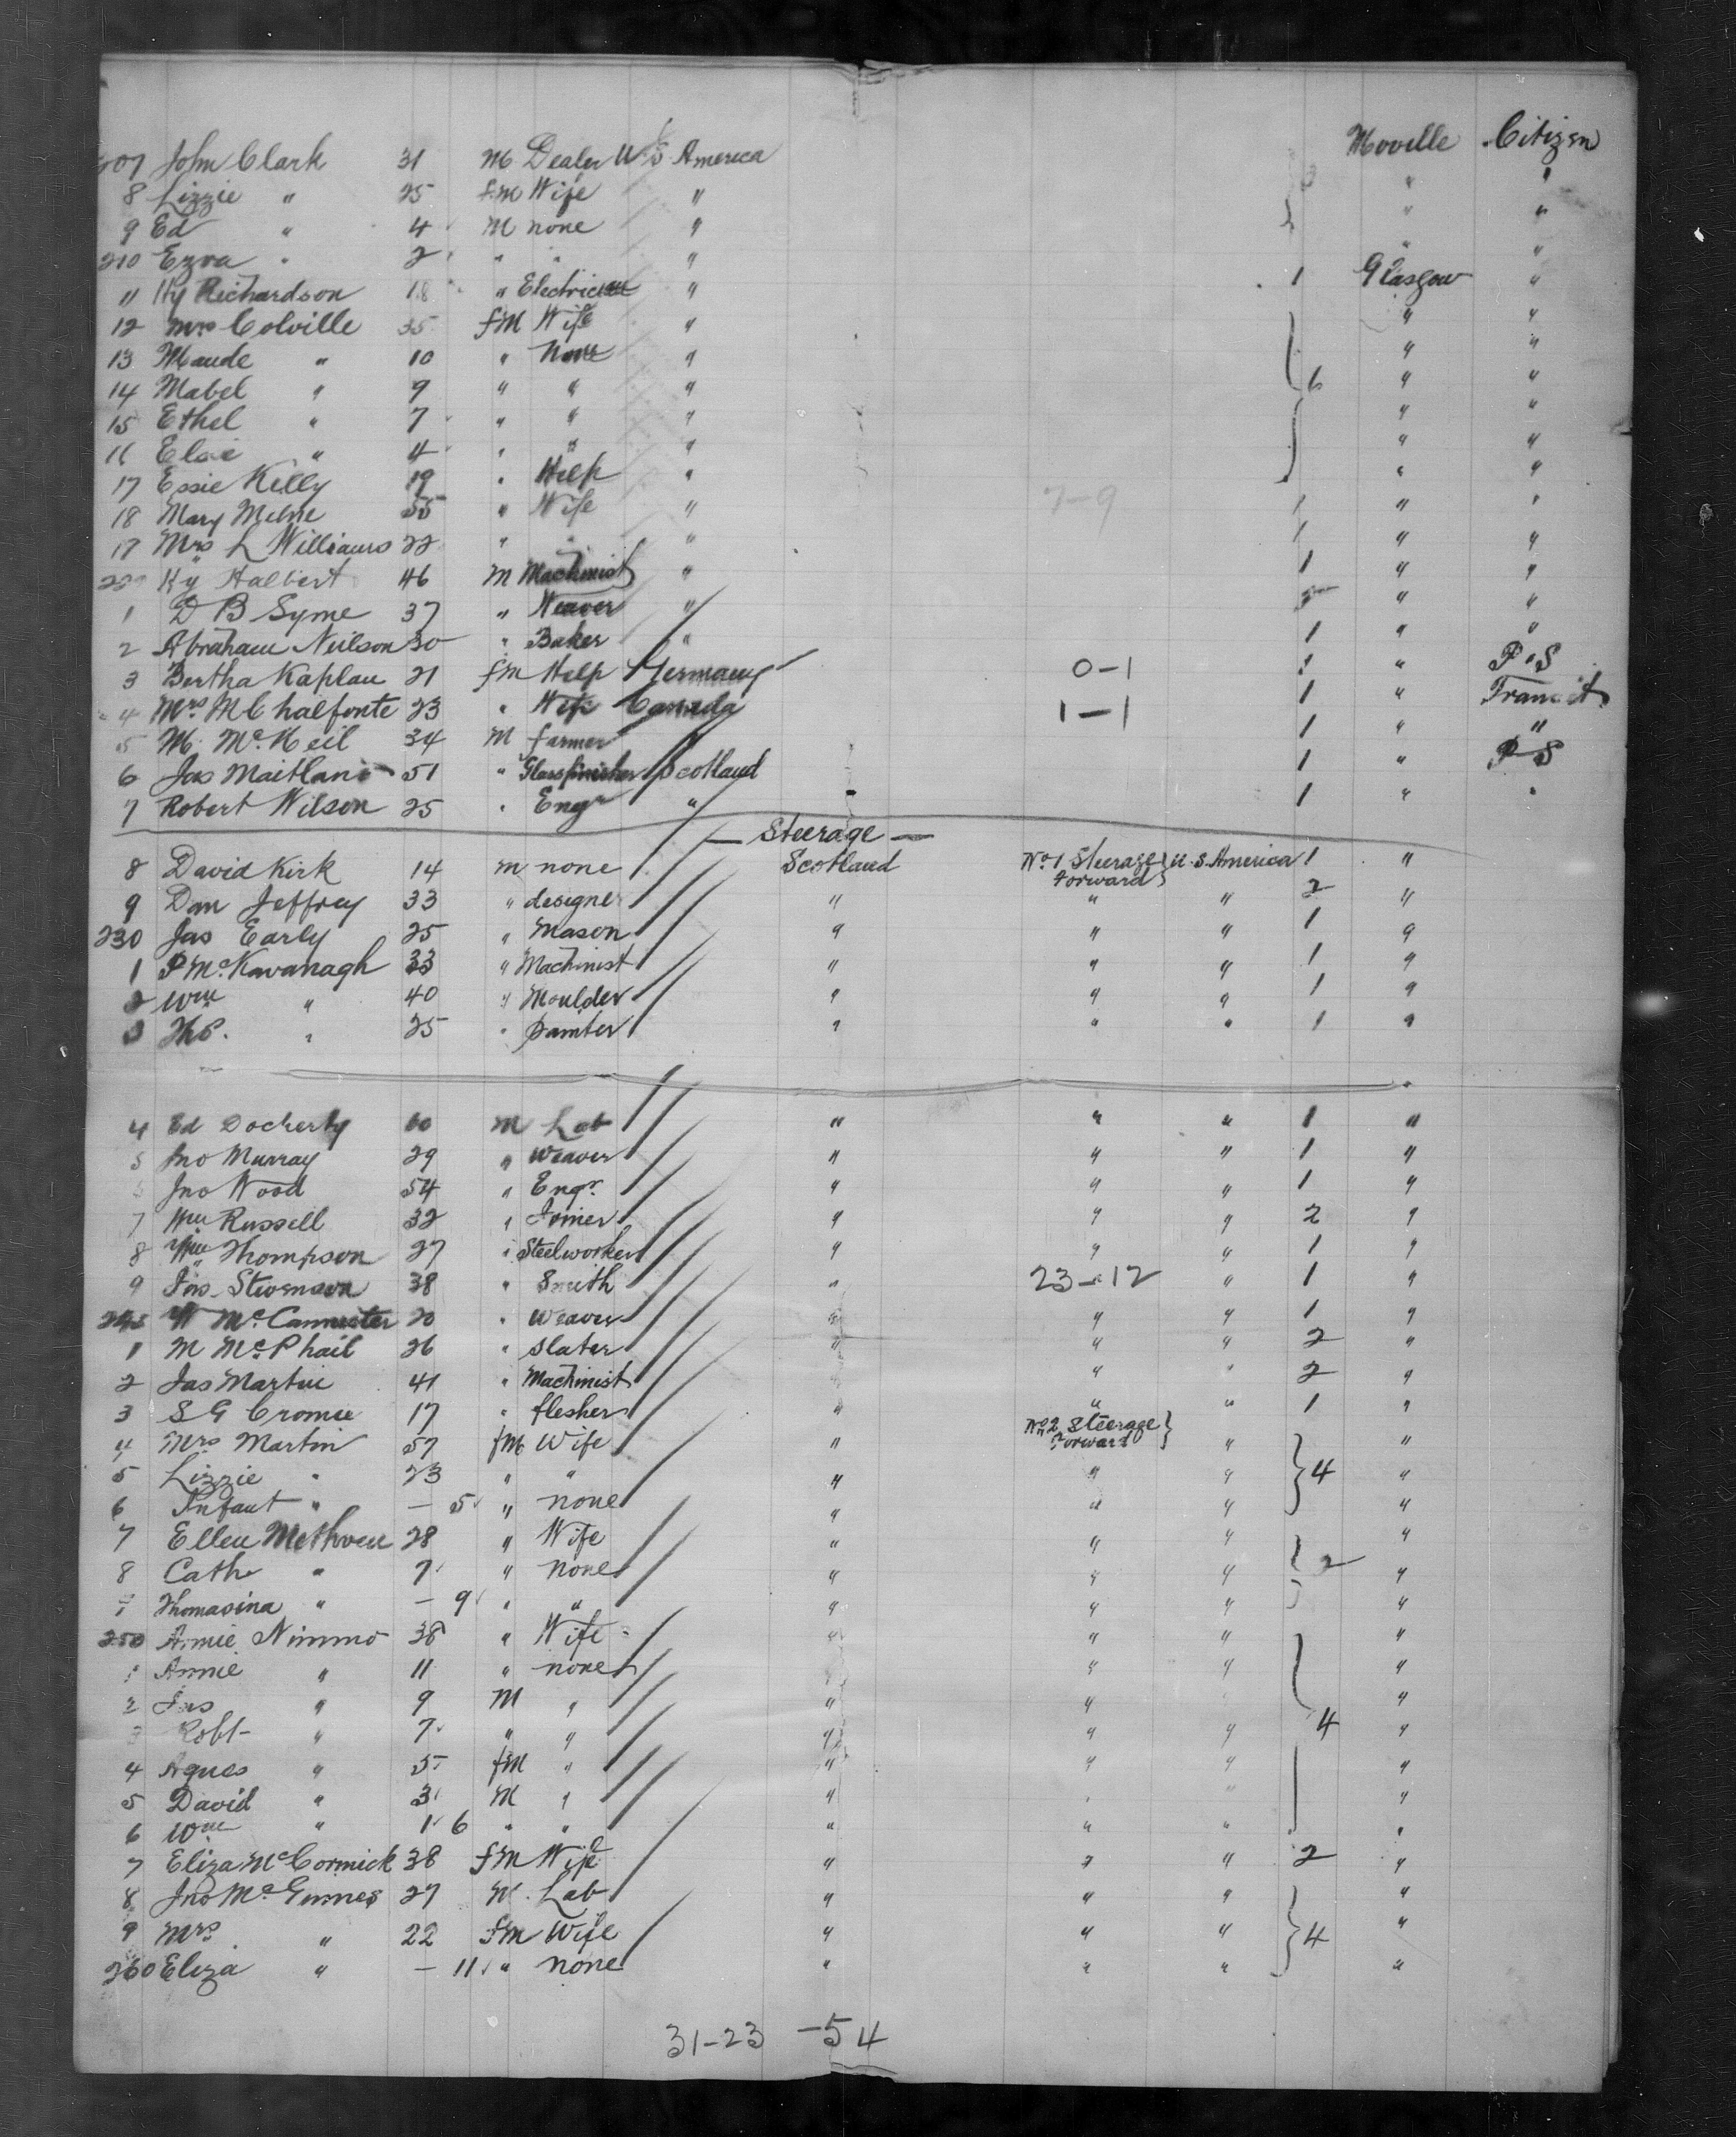 Moville Citizen
207 John Clark 31 M Dealer U S America
8 Lizzie " 25 fM Wife " " "
9 Ed " 4 M none " " "
210 Ezra " 2 " " " " "
11 Hy Richardson 18 " Electrician " 1 Glasgow "
12 Mrs Colville 35 fM Wife " " "
13 Maude " 10 " None " " "
14 Mabel " 9 " " " 6 " "
15 Ethel " 7 " " " " "
16 Elsie " 4 " " " " "
17 Essie Kelly 19 " Help " " "
18 Mary Milne 55 " Wife " 7-9 1 " "
19 Mrs L Williams 22 " " " 1 " "
220 Hy Halbert 46 M Machinist " 1 " "
1 D B Syme 37 " Weaver " 2 " "
2 Abraham Neilson 30 " Baker " 1 " "
3 Bertha Kaplan 21 fM Help Germany 0-1 1 " P S
4 Mrs M Chalfonte 23 " Wife Canada 1-1 1 " Transit
5 M. McNeil 34 M farmer " 1 " "
6 Jas Maitland 51 " Glassfinisher Scotland 1 " P S
7 Robert Wilson 25 " Engr " 1 " "
— Steerage —
8 David Kirk 14 M none Scotland No 1 Steerage Forward } U.S. America 1 "
9 Dan Jeffrey 33 " designer " " " 2 "
230 Jas Early 25 " Mason " " " 1 "
1 P McKavanagh 33 " Machinist " " " 1 "
2 Wm " 40 " Moulder " " " 1 "
3 Ths. " 25 " Painter " " " 1 "
4 Ed Docherty 60 M Lab " " " 1 "
5 Jno Murray 29 " Weaver " " " 1 "
6 Jno Wood 54 " Engr. " " " 1 "
7 Wm Russell 32 " Joiner " " " 2 "
8 Wm Thompson 27 " Steelworker " " " 1 "
9 Jas. Stevenson 38 " Smith " 23-12 " 1 "
240 W McCannister 20 " Weaver " " " 1 "
1 M McPhail 26 " Slater " " " 2 "
2 Jas Martin 41 " Machinist " " " 2 "
3 S G Cromie 17 " flesher " " " 1 "
4 Mrs Martin 57 fM Wife " No 2 Steerage Forward } " "
5 Lizzie " 23 " " " " " } 4 "
6 Infant " — 5 " none " " " "
7 Ellen Methven 28 " Wife " " " "
8 Cath " 7 " none " " " } 2 "
9 Thomasina " — 9 " " " " " "
250 Annie Nimmo 38 " Wife " " " "
1 Annie " 11 " none " " " "
2 Jas " 9 M " " " "
3 Robt " 7 " " " " " 4 "
4 Agnes " 5 fM " " " " "
5 David " 3 M " " " " "
6 Wm " 1 6 " " " " " "
7 Eliza McCormick 38 fM Wife " " " 2 "
8 Jno McGinnes 27 M. Lab " " " "
9 Mrs " 22 fM Wife " " " } 4 "
260 Eliza " — 11 " none " " " "
31-23 -54